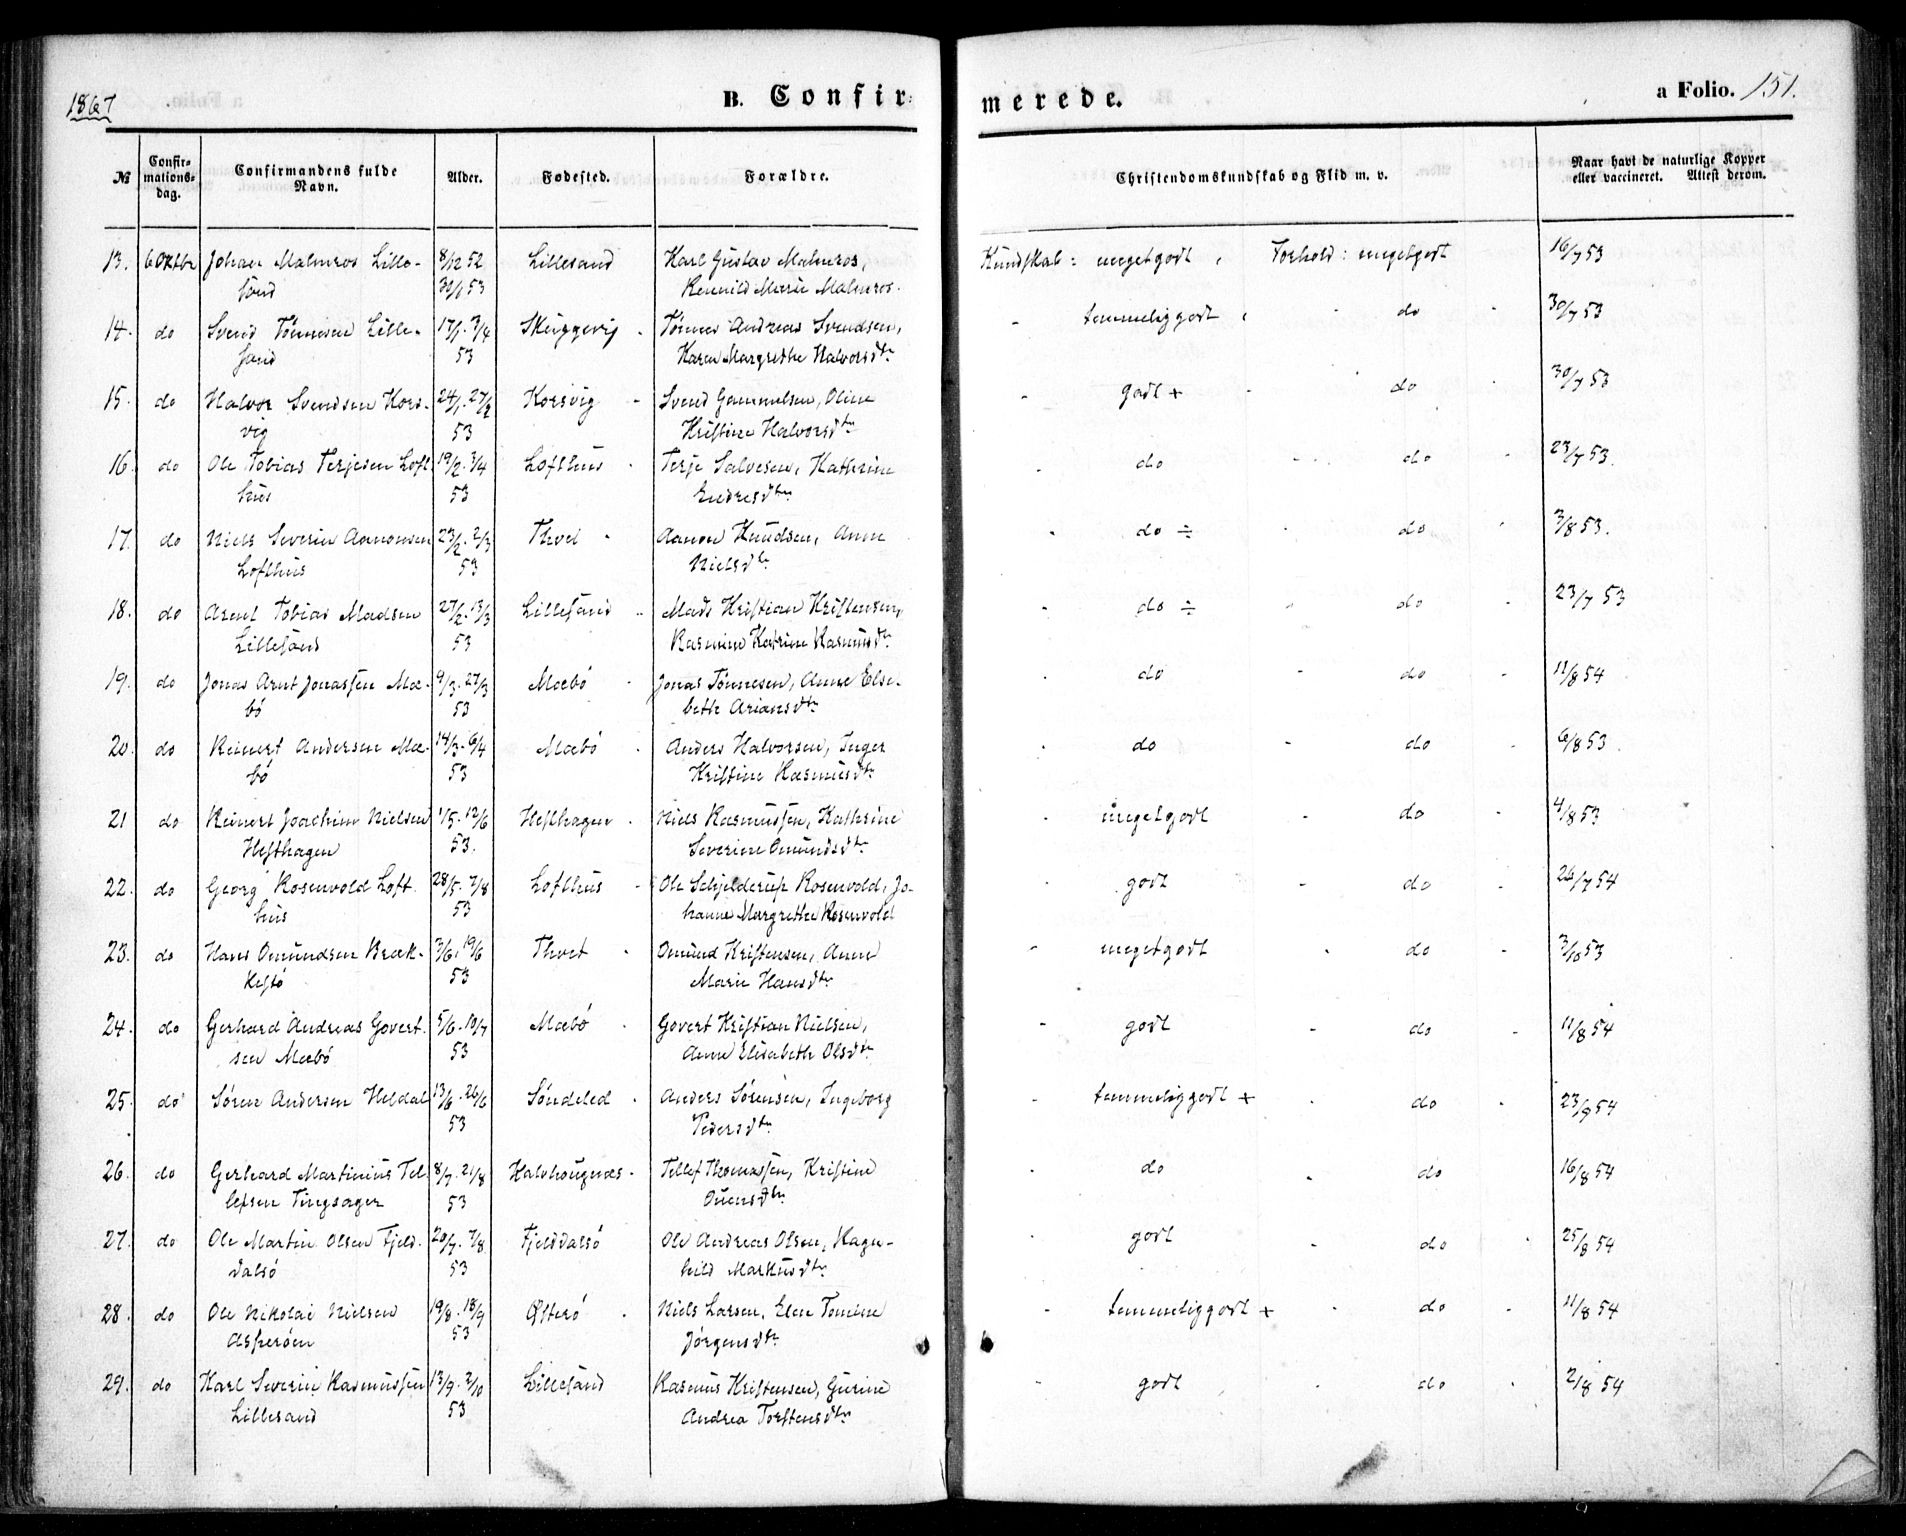 1867
B. Confir-
merede.
a Folio. 151.
№
Confir-
mations-
dag.
Confirmandens fulde
Navn.
Alder.
Fødested.
Forældre.
Christendomskundskab og Flid m. v.
Naar havt de naturlige Kopper
eller vaccineret. Attest derom.
13. 6 Oktbr Johan Malmros Lille- 8/12 52 Lillesand Karl Gustav Malmros, Kundskab: megetgodt, Forhold: megetgodt 16/7 53
sand 30/1 53 Marie Malmros.
14. do Svend Tønnesen Lille- 17/1. 3/4 Skuggevig Tønnes Andreas Svendsen, temmeliggodt, do 30/7 53
sand 53 Karen Margrethe Halvorsdtr
15. do Halvor Svendsen Kors- 24/1. 27/2 Korsvig Svend Gammelsen, Oline godt + do 30/7 53
vig 53 Kristine Halvorsdtr
16. do Ole Tobias Terjesen Loft- 19/2. 3/4 Lofthus Terje Salvesen, Kathrine do do 23/7 53.
hus 53 Endresdtr
17. do Niels Severin Aanonsen 23/2. 2/3 Thvet Aanon Knudsen, Anne do ÷ do 3/8 53.
Lofthus 53 Nielsdtr
18. do Arent Tobias Madsen 27/2. 13/3 Lillesand Mads Kristian Kristensen, do ÷ do 23/7 53
Lillesand 53 Rasmine Katrine Rasmusdtr
19. do Jonas Arnt Jonassen Mæ- 9/3. 27/3 Mæbø Jonas Tønnesen, Anne Else- do do 11/8 54
bø 53 beth Ariansdtr
20. do Reinert Andersen Mæ- 14/3. 6/4 Mæbø Anders Halvorsen, Inger do do 6/8 53.
bø 53 Kristine Rasmusdtr
21 do Reinert Joachim Nielsen 1/5. 12/6 Hesthagen Niels Rasmussen, Kathrine megetgodt do 4/8 53
Hesthagen 53. Severine Omundsdtr
22. do Georg Rosenvold Loft- 28/5. 7/8 Lofthus Ole Schjelderup Rosenvold, Jo- godt do 26/7 54
hus 53 hanne Margrethe Rosenvold
23. do Hans Omundsen Bræk- 3/6. 19/6 Thvet Omund Kristensen, Anne megetgodt do 3/10 53
kestø 53 Marie Hansdtr
24. do Gerhard Andreas Govert- 5/6. 10/7 Mæbø Govert Kristian Nielsen, godt do 11/8 54
sen Mæbø 53 Anne Elisabeth Olsdtr
25. do Søren Andersen Heldal 13/6. 26/6 Søndeled Anders Sørensen, Ingeborg temmeliggodt + do 23/9 54
53 Pedersdtr
26. do Gerhard Martinius Tel- 8/7. 21/8 Halvhougnæs Tellef Thomassen, Kristine do do 16/8 54
lefsen Tingsager 53 Ouensdtr
27. do Ole Martin Olsen Fjeld- 20/7. 7/8 Fjelddalsø Ole Andreas Olsen, Ragn- godt do 25/8 54
dalsø 53 hild Markusdtr
28. do Ole Nikolai Nielsen 19/8. 18/9 Østerø Niels Larsen, Elen Tomine temmeliggodt + do 11/8 54
Asperøen 53 Jørgensdtr
29. do Karl Severin Rasmussen 13/9. 2/10 Lillesand Rasmus Kristensen, Gurine godt do 2/8 54
Lillesand 53 Andrea Torstensdtr